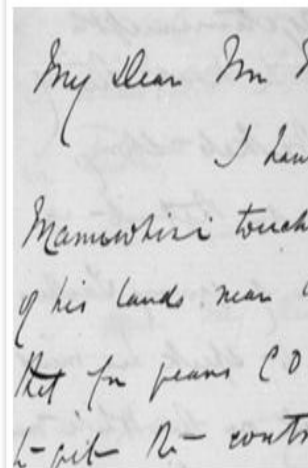 My Dear Mr M
I hav
Manuwhiri touch
of his lands near
that for years C O
to get the contr